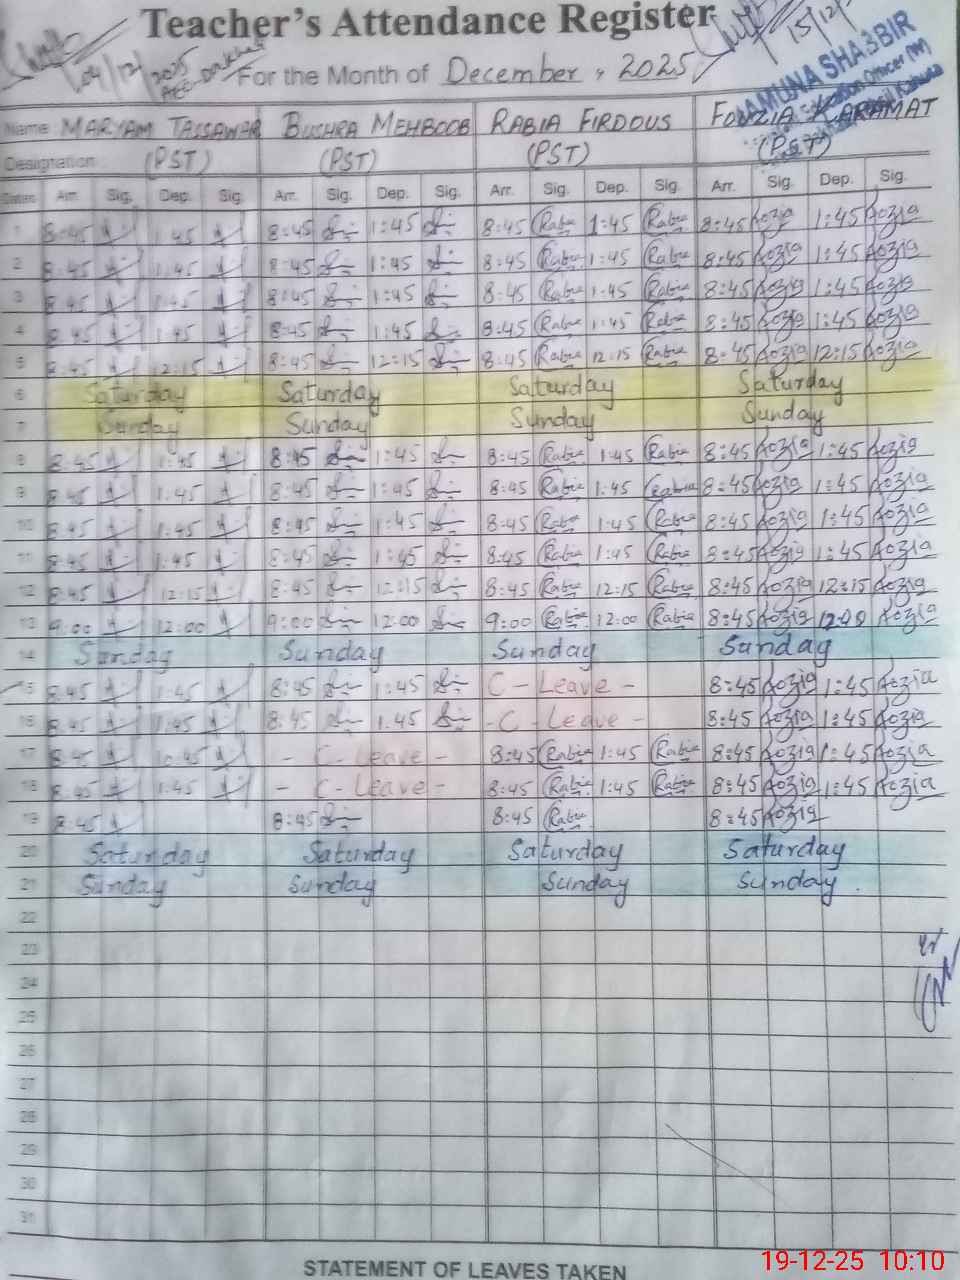 Teacher's Attendance Register
04/12/2025
15/12/
For the Month of December, 2025
JAMUNA SHABBIR
Name MARYAM TASSAWAR BUSHRA MEHBOOB RABIA FIRDOUS FOUZIA KARAMAT
Designation (PST) (PST) (PST) (PST)
Dates Arr. Sig. Dep. Sig. Arr. Sig. Dep. Sig. Arr. Sig. Dep. Sig. Arr. Sig. Dep. Sig.
1 8:45 1:45 8:45 1:45 8:45 Rabia 1:45 Rabia 8:45 Fozia 1:45 Fozia
2 8:45 1:45 8:45 1:45 8:45 Rabia 1:45 Rabia 8:45 Fozia 1:45 Fozia
3 8:45 1:45 8:45 1:45 8:45 Rabia 1:45 Rabia 8:45 Fozia 1:45 Fozia
4 8:45 1:45 8:45 1:45 8:45 Rabia 1:45 Rabia 8:45 Fozia 1:45 Fozia
5 8:45 12:15 8:45 12:15 8:45 Rabia 12:15 Rabia 8:45 Fozia 12:15 Fozia
6 Saturday Saturday Saturday Saturday
7 Sunday Sunday Sunday Sunday
8 8:45 1:45 8:45 1:45 8:45 Rabia 1:45 Rabia 8:45 Fozia 1:45 Fozia
9 8:45 1:45 8:45 1:45 8:45 Rabia 1:45 Rabia 8:45 Fozia 1:45 Fozia
10 8:45 1:45 8:45 1:45 8:45 Rabia 1:45 Rabia 8:45 Fozia 1:45 Fozia
11 8:45 1:45 8:45 1:45 8:45 Rabia 1:45 Rabia 8:45 Fozia 1:45 Fozia
12 8:45 12:15 8:45 12:15 8:45 Rabia 12:15 Rabia 8:45 Fozia 12:15 Fozia
13 9:00 12:00 9:00 12:00 9:00 Rabia 12:00 Rabia 8:45 Fozia 12:00 Fozia
14 Sunday Sunday Sunday Sunday
15 8:45 1:45 8:45 1:45 C - Leave - 8:45 Fozia 1:45 Fozia
16 8:45 1:45 8:45 1:45 - C - Leave - 8:45 Fozia 1:45 Fozia
17 8:45 - C - Leave - 8:45 Rabia 1:45 Rabia 8:45 Fozia 1:45 Fozia
18 8:45 1:45 - C - Leave - 8:45 Rabia 1:45 Rabia 8:45 Fozia 1:45 Fozia
19 8:45 8:45 8:45 Rabia 8:45 Fozia
20 Saturday Saturday Saturday Saturday
21 Sunday Sunday Sunday Sunday
22
23
24
25
26
27
28
29
30
31
STATEMENT OF LEAVES TAKEN
19-12-25 10:10